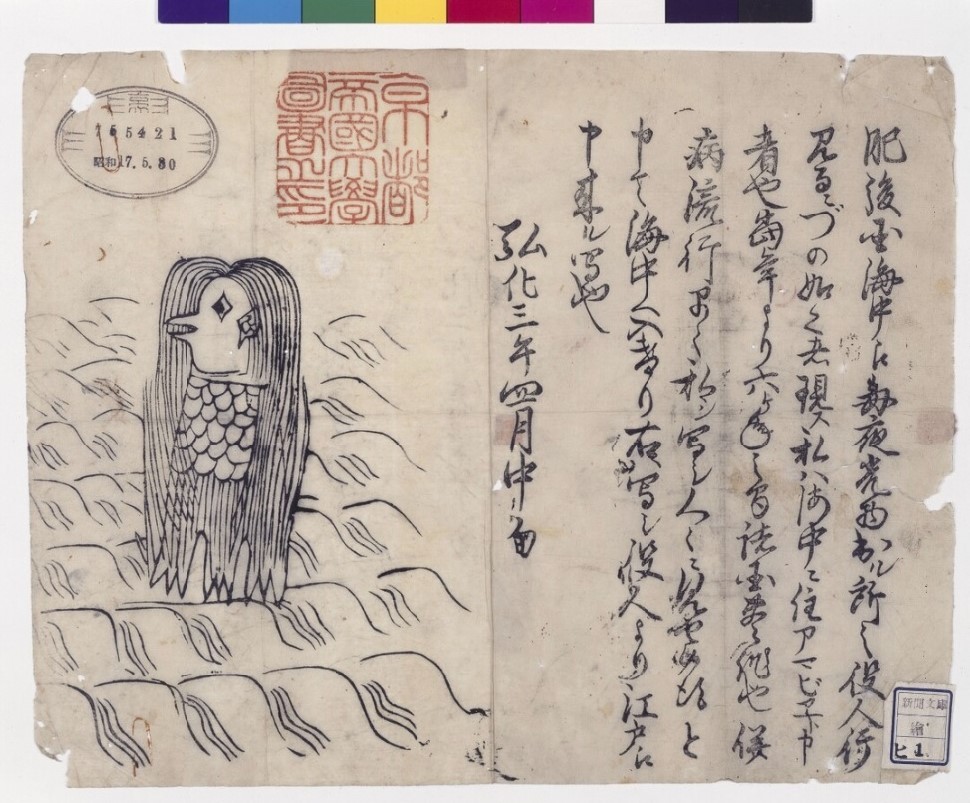 肥後国海中え毎夜光物出ル所之役人行
見るニづの如之者現ス私ハ海中ニ住アマビヱト申
者也当年より六ヶ年之間諸国豊作也併
病流行早々私シ写シ人々ニ見セ候得と
申て海中へ入けり右写シ役人より江戸え
申来ル写也
弘化三年四月中旬
京都
帝國大學
圖書之印
昭和17.5.30
新聞文庫
繪
ヒ1